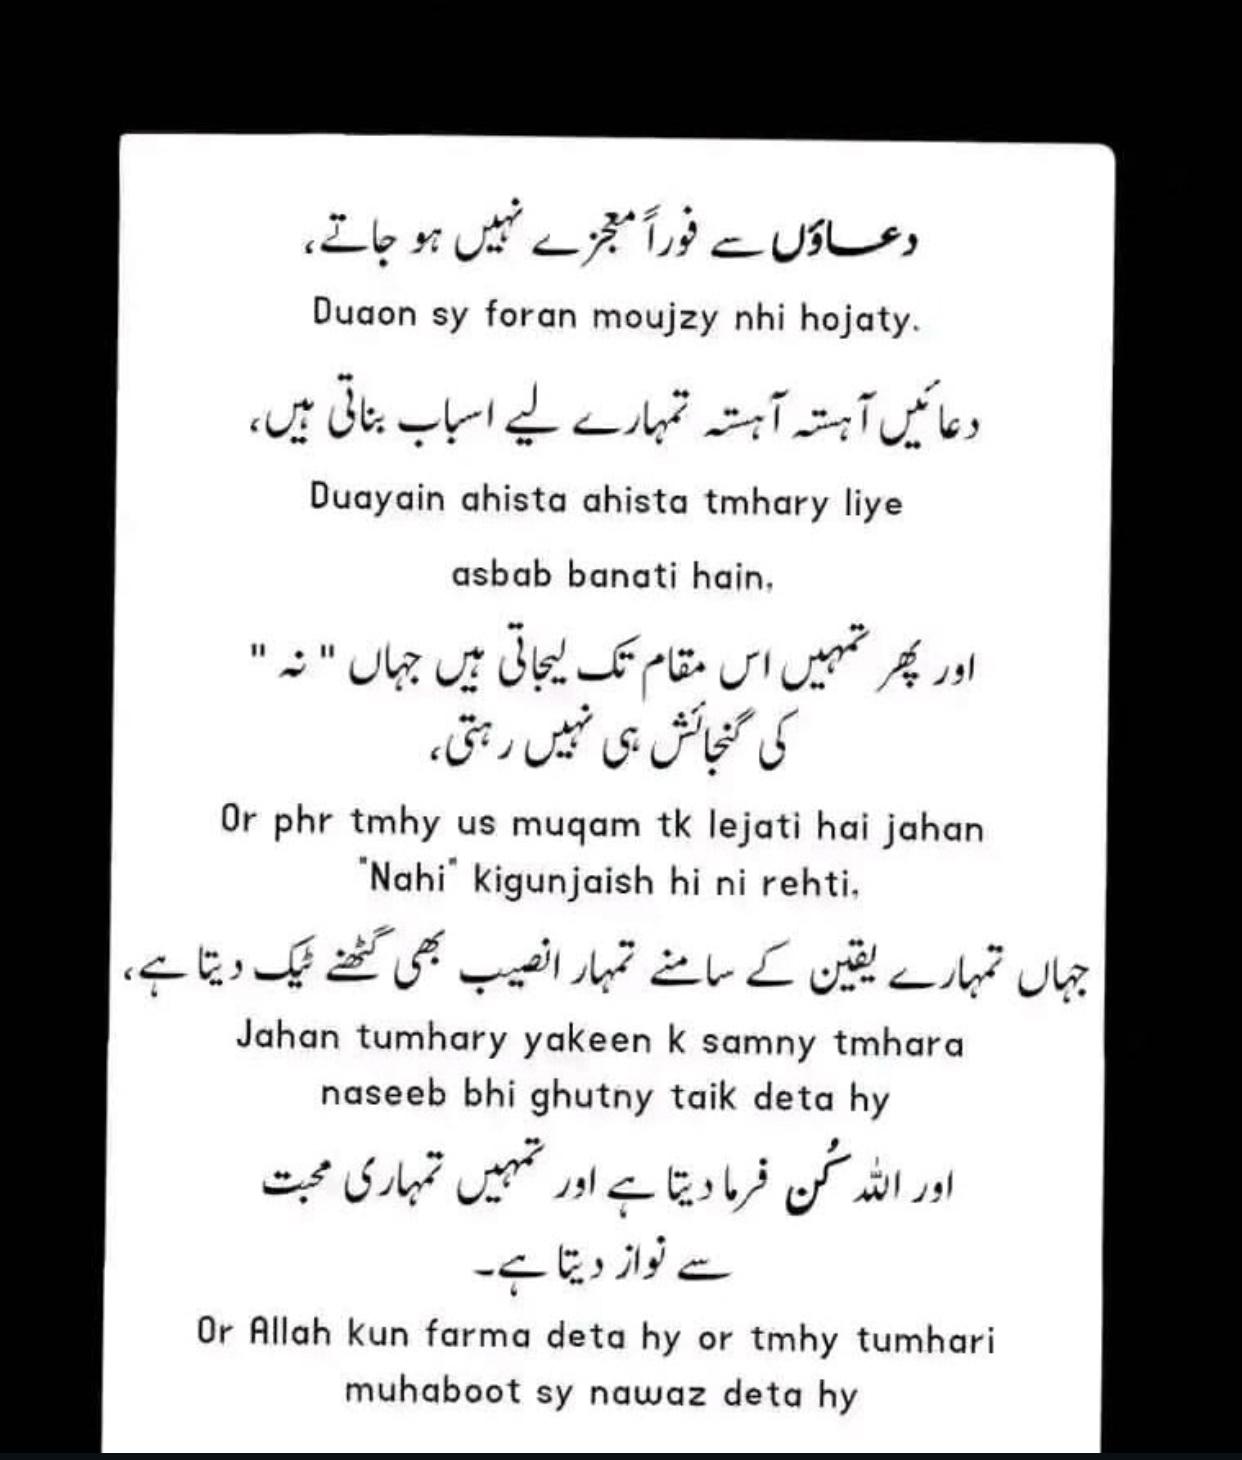 دعاؤں سے فوراً معجزے نہیں ہو جاتے،
Duaon sy foran moujzy nhi hojaty.
دعائیں آہستہ آہستہ تمہارے لیے اسباب بناتی ہیں،
Duayain ahista ahista tmhary liye
asbab banati hain,
اور پھر تمہیں اس مقام تک لیجاتی ہیں جہاں " نہ "
کی گنجائش ہی نہیں رہتی،
Or phr tmhy us muqam tk lejati hai jahan
"Nahi" kigunjaish hi ni rehti,
جہاں تمہارے یقین کے سامنے تمہار انصیب بھی گٹھنے ٹیک دیتا ہے،
Jahan tumhary yakeen k samny tmhara
naseeb bhi ghutny taik deta hy
اور اللہ کُن فرما دیتا ہے اور تمہیں تمہاری محبت
سے نواز دیتا ہے۔
Or Allah kun farma deta hy or tmhy tumhari
muhaboot sy nawaz deta hy